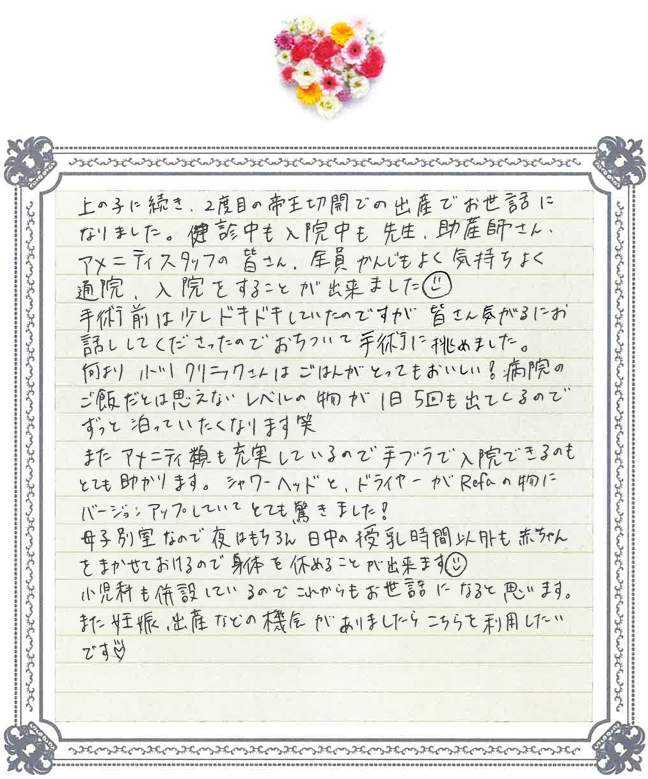 上の子に続き、2度目の帝王切開での出産でお世話に
なりました。健診中も入院中も先生、助産師さん、
アメニティスタッフの皆さん、全員かんじもよく気持ちよく
通院、入院をすることが出来ました☺
手術前は少しドキドキしていたのですが皆さん気がるにお
話ししてくださったのでおちついて手術に挑めました。
何より小川クリニックさんはごはんがとってもおいしい!病院の
ご飯だとは思えないレベルの物が1日5回も出てくるので
ずっと泊っていたくなります笑
またアメニティ類も充実しているので手ブラで入院できるのも
とても助かります。シャワーヘッドと、ドライヤーがRefaの物に
バージョンアップしていてとても驚きました!
母子別室なので夜はもちろん日中の授乳時間以外も赤ちゃん
をまかせておけるので身体を休めることが出来ます☺
小児科も併設しているのでこれからもお世話になると思います。
また妊娠、出産などの機会がありましたらこちらを利用したい
です♡